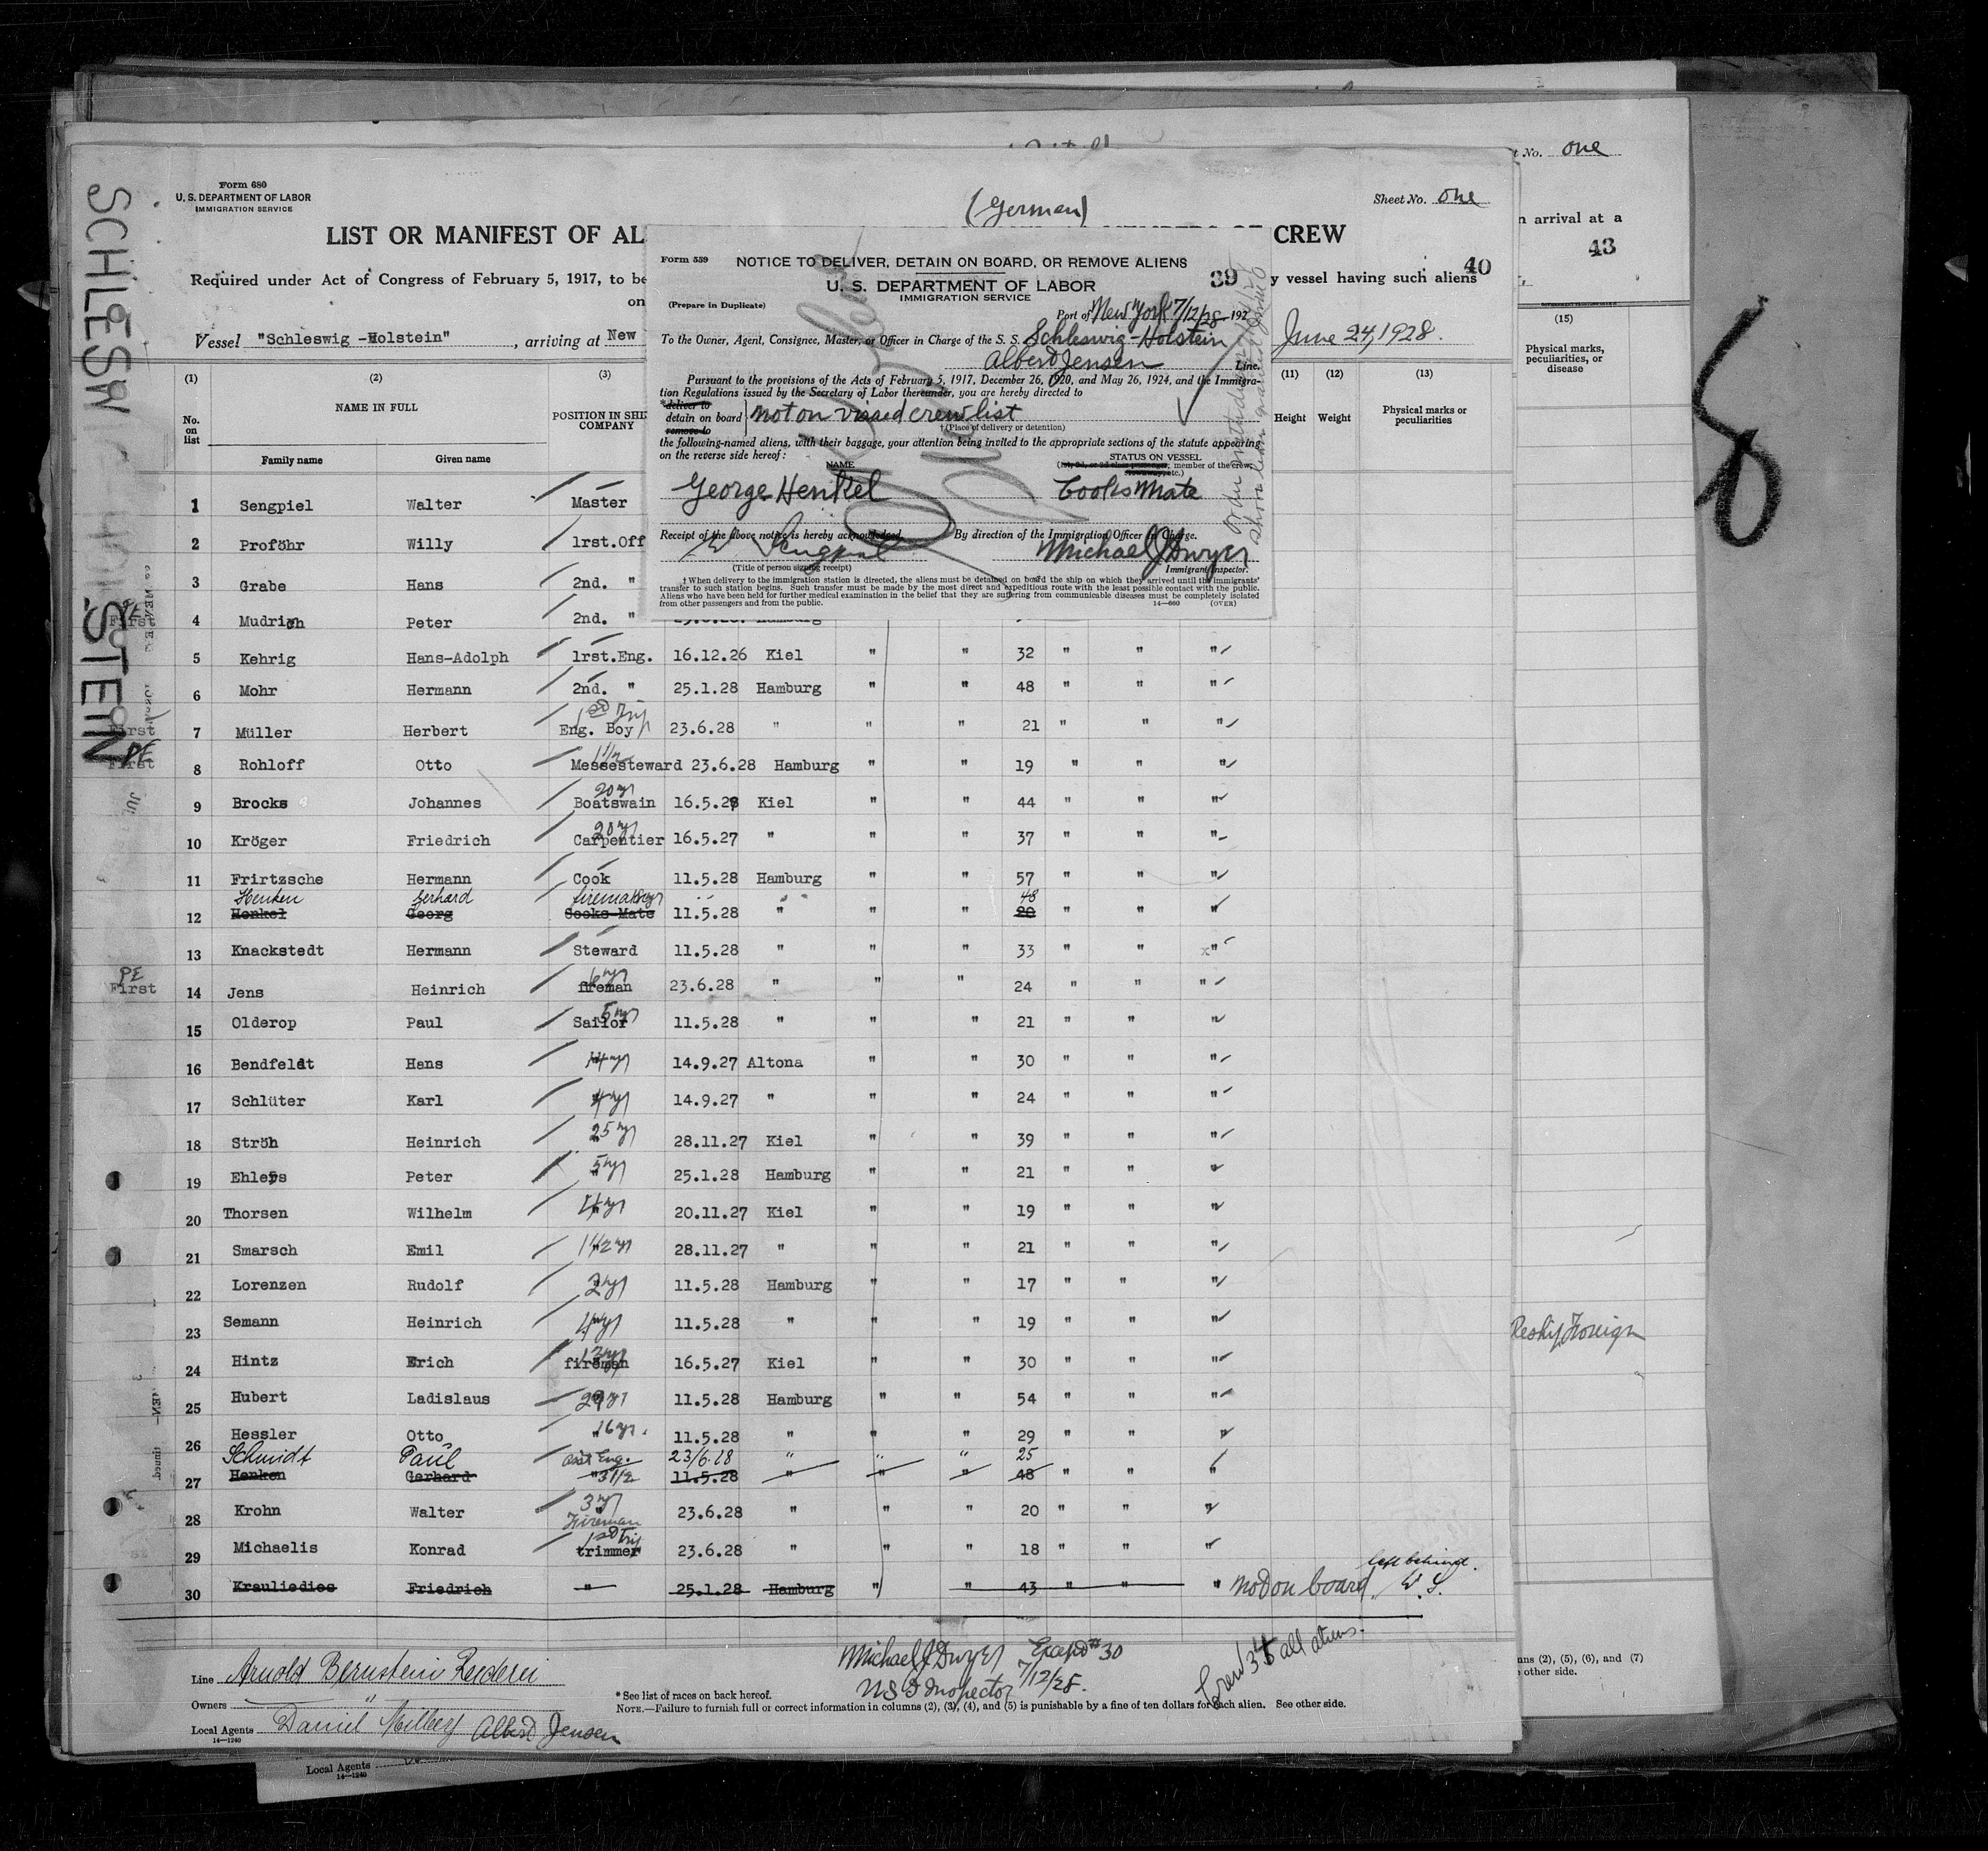 Form 680
U. S. DEPARTMENT OF LABOR
IMMIGRATION SERVICE
(German)
Sheet No. one
LIST OR MANIFEST OF AL
CREW
40
Required under Act of Congress of February 5, 1917, to be
y vessel having such aliens
on
Vessel "Schleswig -Holstein" , arriving at New
June 24, 1928.
SCHLESW
STEIN
t No. one
n arrival at a
43
(15)
Physical marks, peculiarities, or disease
Form 559
NOTICE TO DELIVER, DETAIN ON BOARD, OR REMOVE ALIENS
39
U. S. DEPARTMENT OF LABOR
IMMIGRATION SERVICE
(Prepare in Duplicate)
Port of New York 7/12/28 192
To the Owner, Agent, Consignee, Master, or Officer in Charge of the S. S. Schleswig-Holstein
Albert Jensen Line.
Pursuant to the provisions of the Acts of February 5, 1917, December 26, 1920, and May 26, 1924, and the Immigra-
tion Regulations issued by the Secretary of Labor thereunder, you are hereby directed to
*deliver to
detain on board not on visaed crew list
remove to
†(Place of delivery or detention)
the following-named aliens, with their baggage, your attention being invited to the appropriate sections of the statute appearing
on the reverse side hereof:
NAME
STATUS ON VESSEL
(1st, 2d, or 3d class passenger, member of the crew,
stowaway, etc.)
George Henkel Cooks Mate
Receipt of the above notice is hereby acknowledged. By direction of the Immigration Officer in Charge.
W Sengpiel Michael J Dwyer
(Title of person signing receipt) Immigrant Inspector.
†When delivery to the immigration station is directed, the aliens must be detained on board the ship on which they arrived until the immigrants'
transfer to such station begins. Such transfer must be made by the most direct and expeditious route with the least possible contact with the public.
Aliens who have been held for further medical examination in the belief that they are suffering from communicable diseases must be completely isolated
from other passengers and from the public.
14—600 (OVER)
(1) (2) (3) (11) (12) (13)
No. on list
NAME IN FULL
Family name Given name
POSITION IN SHI
COMPANY
Height Weight Physical marks or peculiarities
1 Sengpiel Walter Master
2 Proföhr Willy 1rst.Off
3 Grabe Hans 2nd. "
First 4 Mudrich Peter 2nd. "
5 Kehrig Hans-Adolph 1rst.Eng. 16.12.26 Kiel " " 32 " " "
6 Mohr Hermann 2nd. " 25.1.28 Hamburg " " 48 " " "
First 7 Müller Herbert Eng. Boy 23.6.28 " " " 21 " " "
First 8 Rohloff Otto Messesteward 23.6.28 Hamburg " " 19 " " "
9 Brocks Johannes 20 yr Boatswain 16.5.28 Kiel " " 44 " " "
10 Kröger Friedrich 20 yr Carpentier 16.5.27 " " " 37 " " "
11 Frirtzsche Hermann Cook 11.5.28 Hamburg " " 57 " " "
Henken Gerhard fireman 48
12 Henkel Georg Cooks-Mate 11.5.28 " " " 20 " " "
13 Knackstedt Hermann Steward 11.5.28 " " " 33 " " x"
PE
First 14 Jens Heinrich fireman 23.6.28 " " " 24 " " "
15 Olderop Paul 5 yr Sailor 11.5.28 " " " 21 " " "
16 Bendfeldt Hans 14.9.27 Altona " " 30 " " "
17 Schlüter Karl 4 yr 14.9.27 " " " 24 " " "
18 Ströh Heinrich 25 yr 28.11.27 Kiel " " 39 " " "
19 Ehlers Peter 5 yr 25.1.28 Hamburg " " 21 " " "
20 Thorsen Wilhelm 20.11.27 Kiel " " 19 " " "
21 Smarsch Emil 1 1/2 yr 28.11.27 " " " 21 " " "
22 Lorenzen Rudolf 2 yr 11.5.28 Hamburg " " 17 " " "
23 Semann Heinrich 4 yr 11.5.28 " " " 19 " " "
24 Hintz Erich fireman 16.5.27 Kiel " " 30 " " "
25 Hubert Ladislaus 11.5.28 Hamburg " " 54 " " "
26 Hessler Otto 16 yr. 11.5.28 " " " 29 " " "
Schmidt Paul asst Eng. 23/6.28 " " " 25
27 Henken Gerhard " 3 1/2 11.5.28 " " " 48 " " "
28 Krohn Walter 3 yr Fireman 23.6.28 " " " 20 " " "
29 Michaelis Konrad 1st Trip trimmer 23.6.28 " " " 18 " " "
30 Krauliedies Friedrich " 25.1.28 Hamburg " " 43 " " " not on board left behind. W. S.
Line Arnold Bernstein Rederei
Owners "
Local Agents Daniel Albert Jensen
14—1240
Michael J Dwyer Except #30
US I Inspector 7/12/28.
Crew 34 all aliens.
* See list of races on back hereof.
NOTE.—Failure to furnish full or correct information in columns (2), (3), (4), and (5) is punishable by a fine of ten dollars for each alien. See other side.
Foreign
ns (2), (5), (6), and (7)
other side.
Local Agents
14—1240